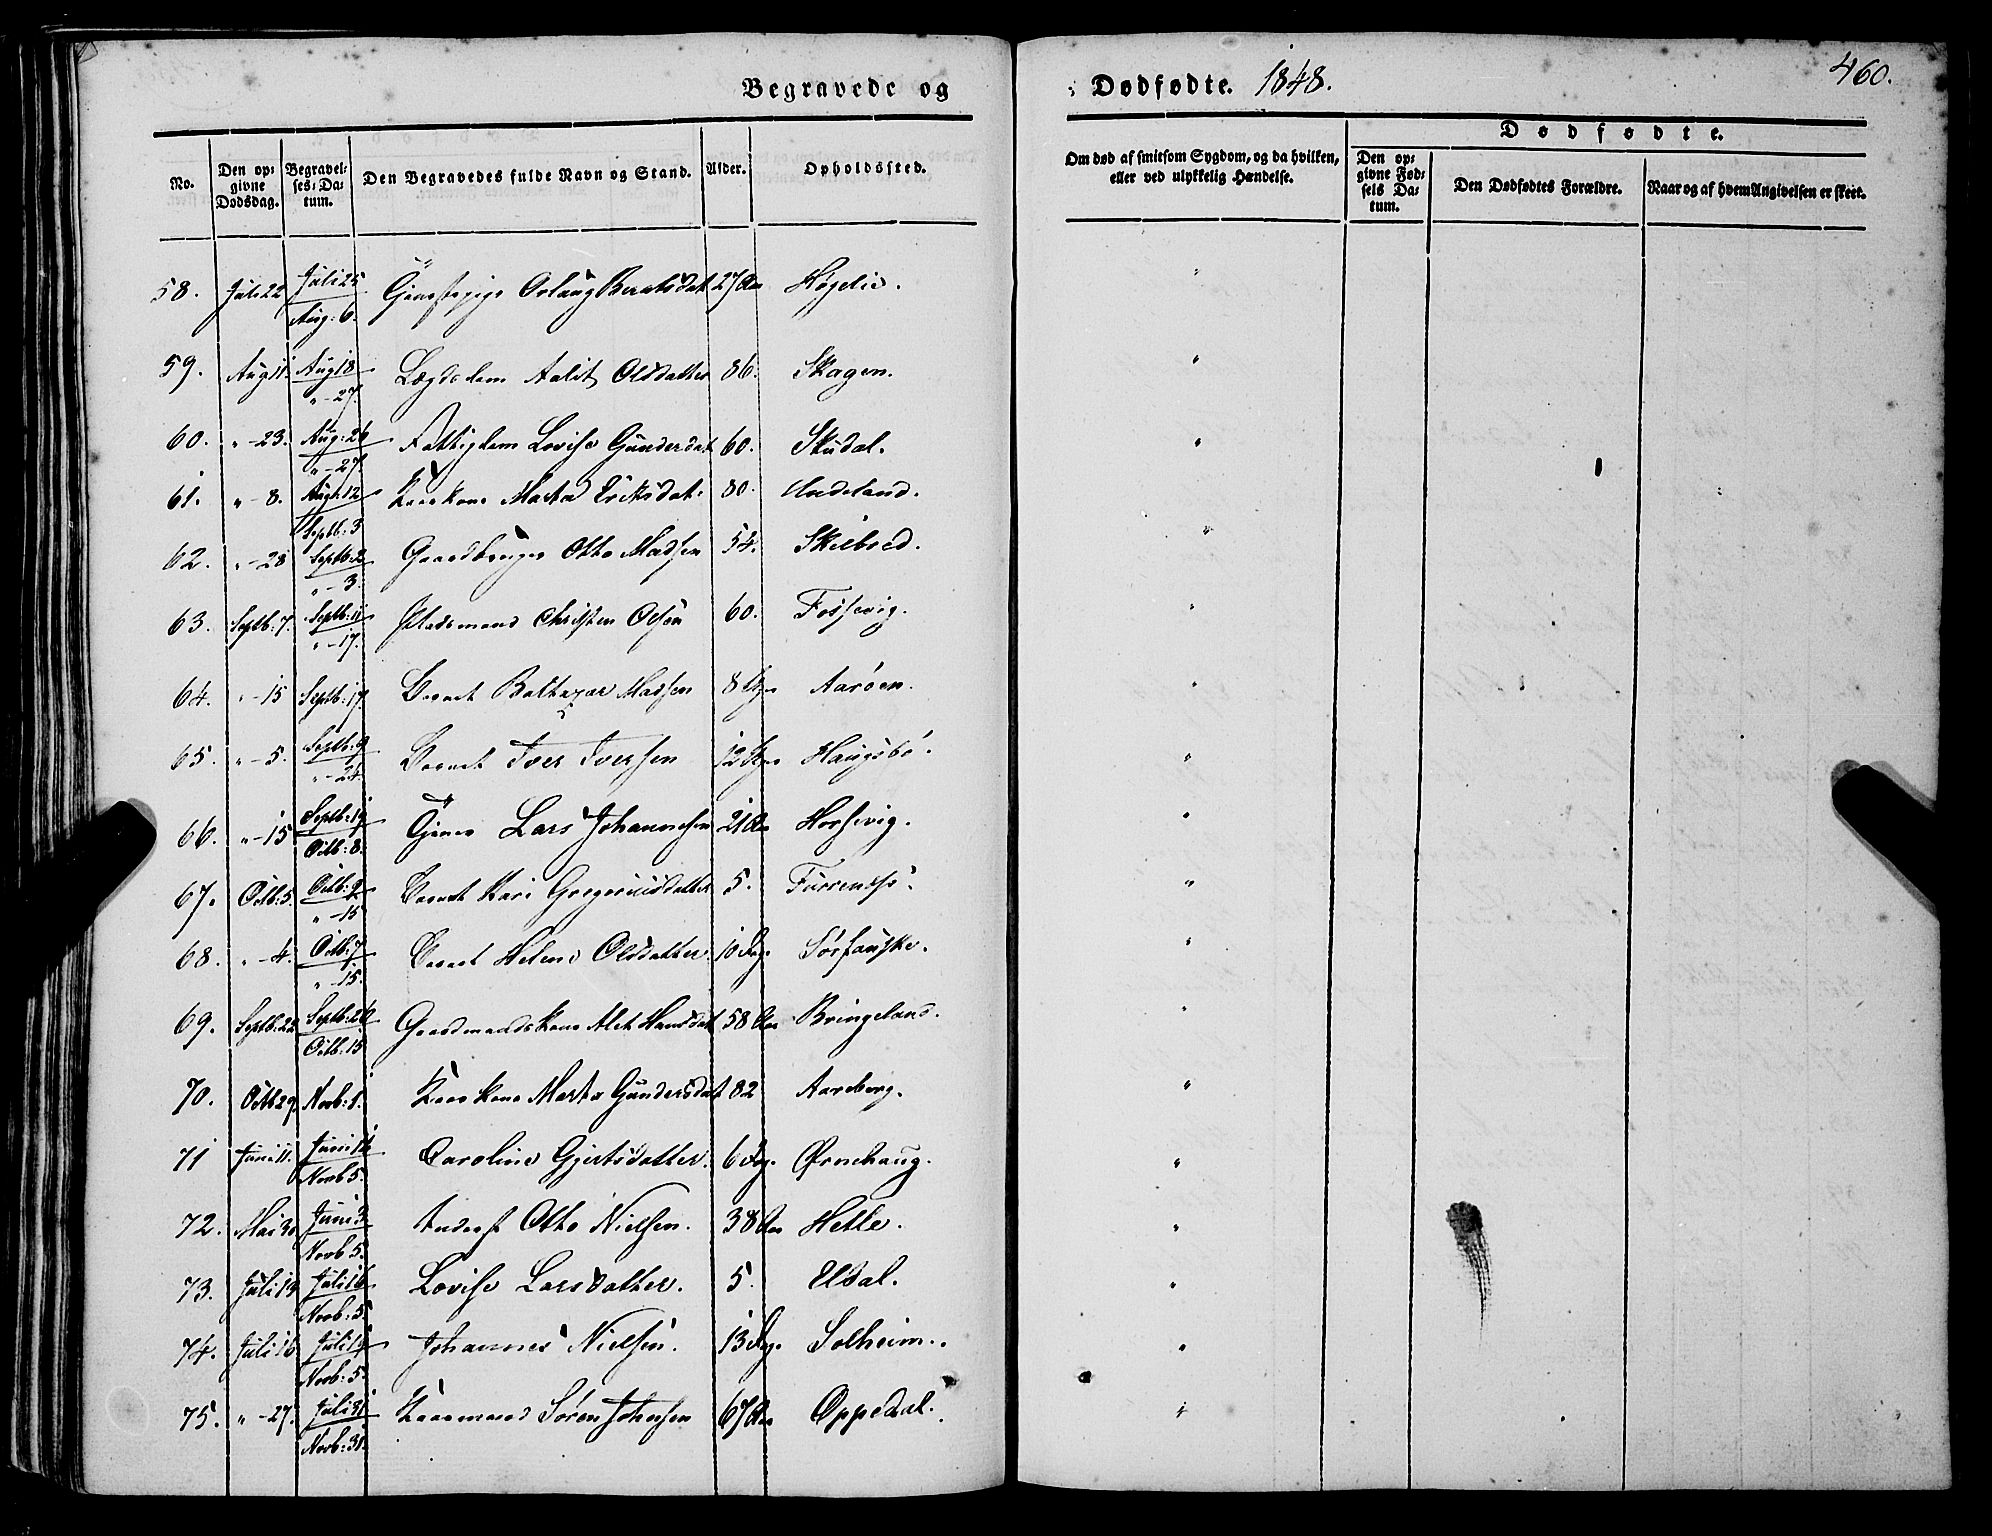 Begravede og
Dødfødte. 1848.
460.
No.
Den opgivne Dødsdag.
Begravelses-Datum.
Den Begravedes fulde Navn og Stand.
Alder.
Opholdssted.
Om død af smitsom Sygdom, og da hvilken, eller ved ulykkelig Hændelse.
Dødfødte.
Den opgivne Fødsels Datum.
Den Dødfødtes Forældre.
Naar og af hvem Angivelsen er skeet.
58. Juli 22 Juli 25 / Aug: 6. Oslaug Berntsdat 27 Aar Høgelie. "
59. Aug 11. Aug 18 / " - 27. Lægdslem Aalit Olsdatter 86. Skagen. "
60. " - 23. Aug: 26 / " - 27. Fattiglem Lovise Gundersdat 60. Skudal. "
61. " - 8. Aug: 12 / Septb: 3 Kaarkone Marta Eriksdat: 80. Indeland. "
62. " - 28 Septb: 2 / " - 3. Gaardbruger Otto Madsen 54. Skilbred. "
63. Septb: 7. Septb: 11 / " - 17. Pladsmand Christen Olsen 60. Fossevig. "
64. " - 15 Septb: 17. Barnet Baltazar Madsen 8 Aarøen. "
65. " - 5. Septb: 9 / " - 24. Barnet Iver Iversen 12 Haugsbø. "
66. " - 15 Septb: 19 / Octb: 8. Lars Johannesen 21 Aar Horsevig. "
67. Octb: 5. Octb: 9 / " - 15 Barnet Kari Gregoriusdatter 5. "
68. " - 4. Octb: 7 / " - 15. Barnet Helene Olsdatter 10 Dag. Sørfauske. "
69. Septb: 22 Septb: 26 / Octb: 15 Gaardmandskone Alet Hansdat 58 Aar Bringeland. "
70. Octb 29. Novb: 1. Kaarkone Marta Gundersdat 82 Aareberg. "
71 Juni 11. Juni 16 / Novb 5. Caroline Gjertsdatter. 6 Dag. Ørnehaug. "
72. Mai 30 Juni 3 / Novb 5. Inderst Otto Nielsen. 38 Aar Hetle. "
73. Juli 13 Juli 16 / Novb: 5. Lovise Larsdatter. 5. Eldal. "
74. Juli 16 Juli 19 / Novb: 5. Johannes Nielsen. 13 Dag. Solheim. "
75. " - 27. Juli 31 / Novb: 31. Kaarmand Søren Johnsen 67 Aar Oppedal. "